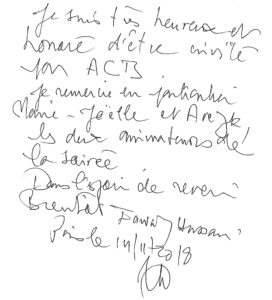 Je suis très heureux et
honoré d'être invité
par ACTS
je remercie en particulier
Marie-Joëlle et
les deux animateurs de
la soirée
Dans l'espoir de revenir
Bientôt
Paris le 14/11/2018